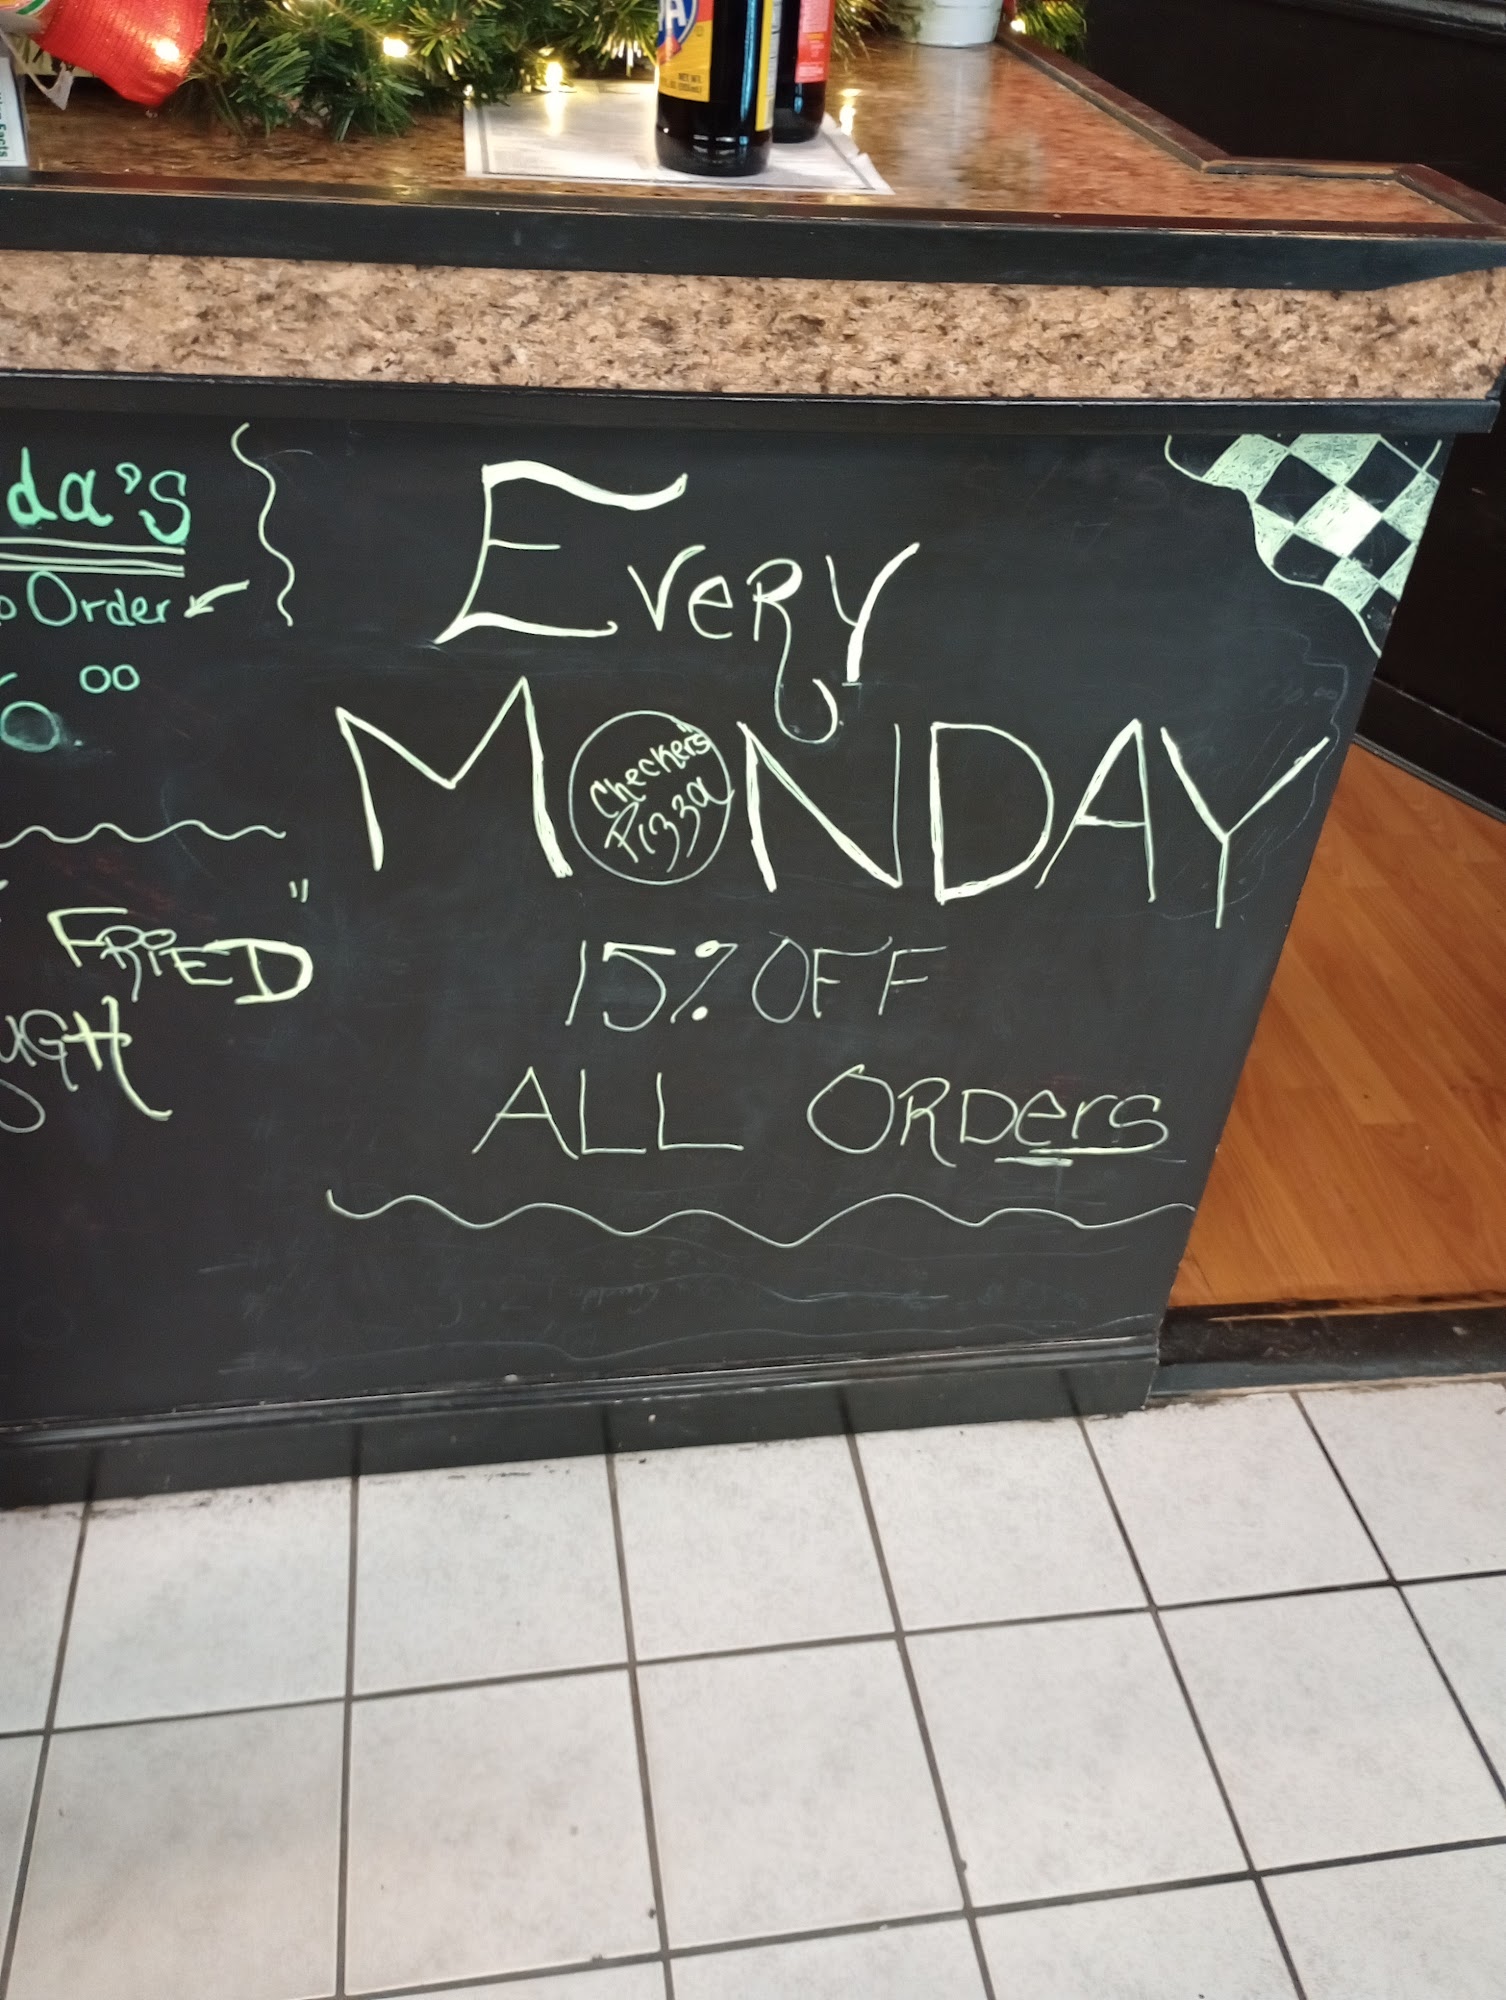 da's
Order
00
"
FRIED
UGH
Every
MONDAY
Checker's
Pizza
15% OFF
ALL ORDers